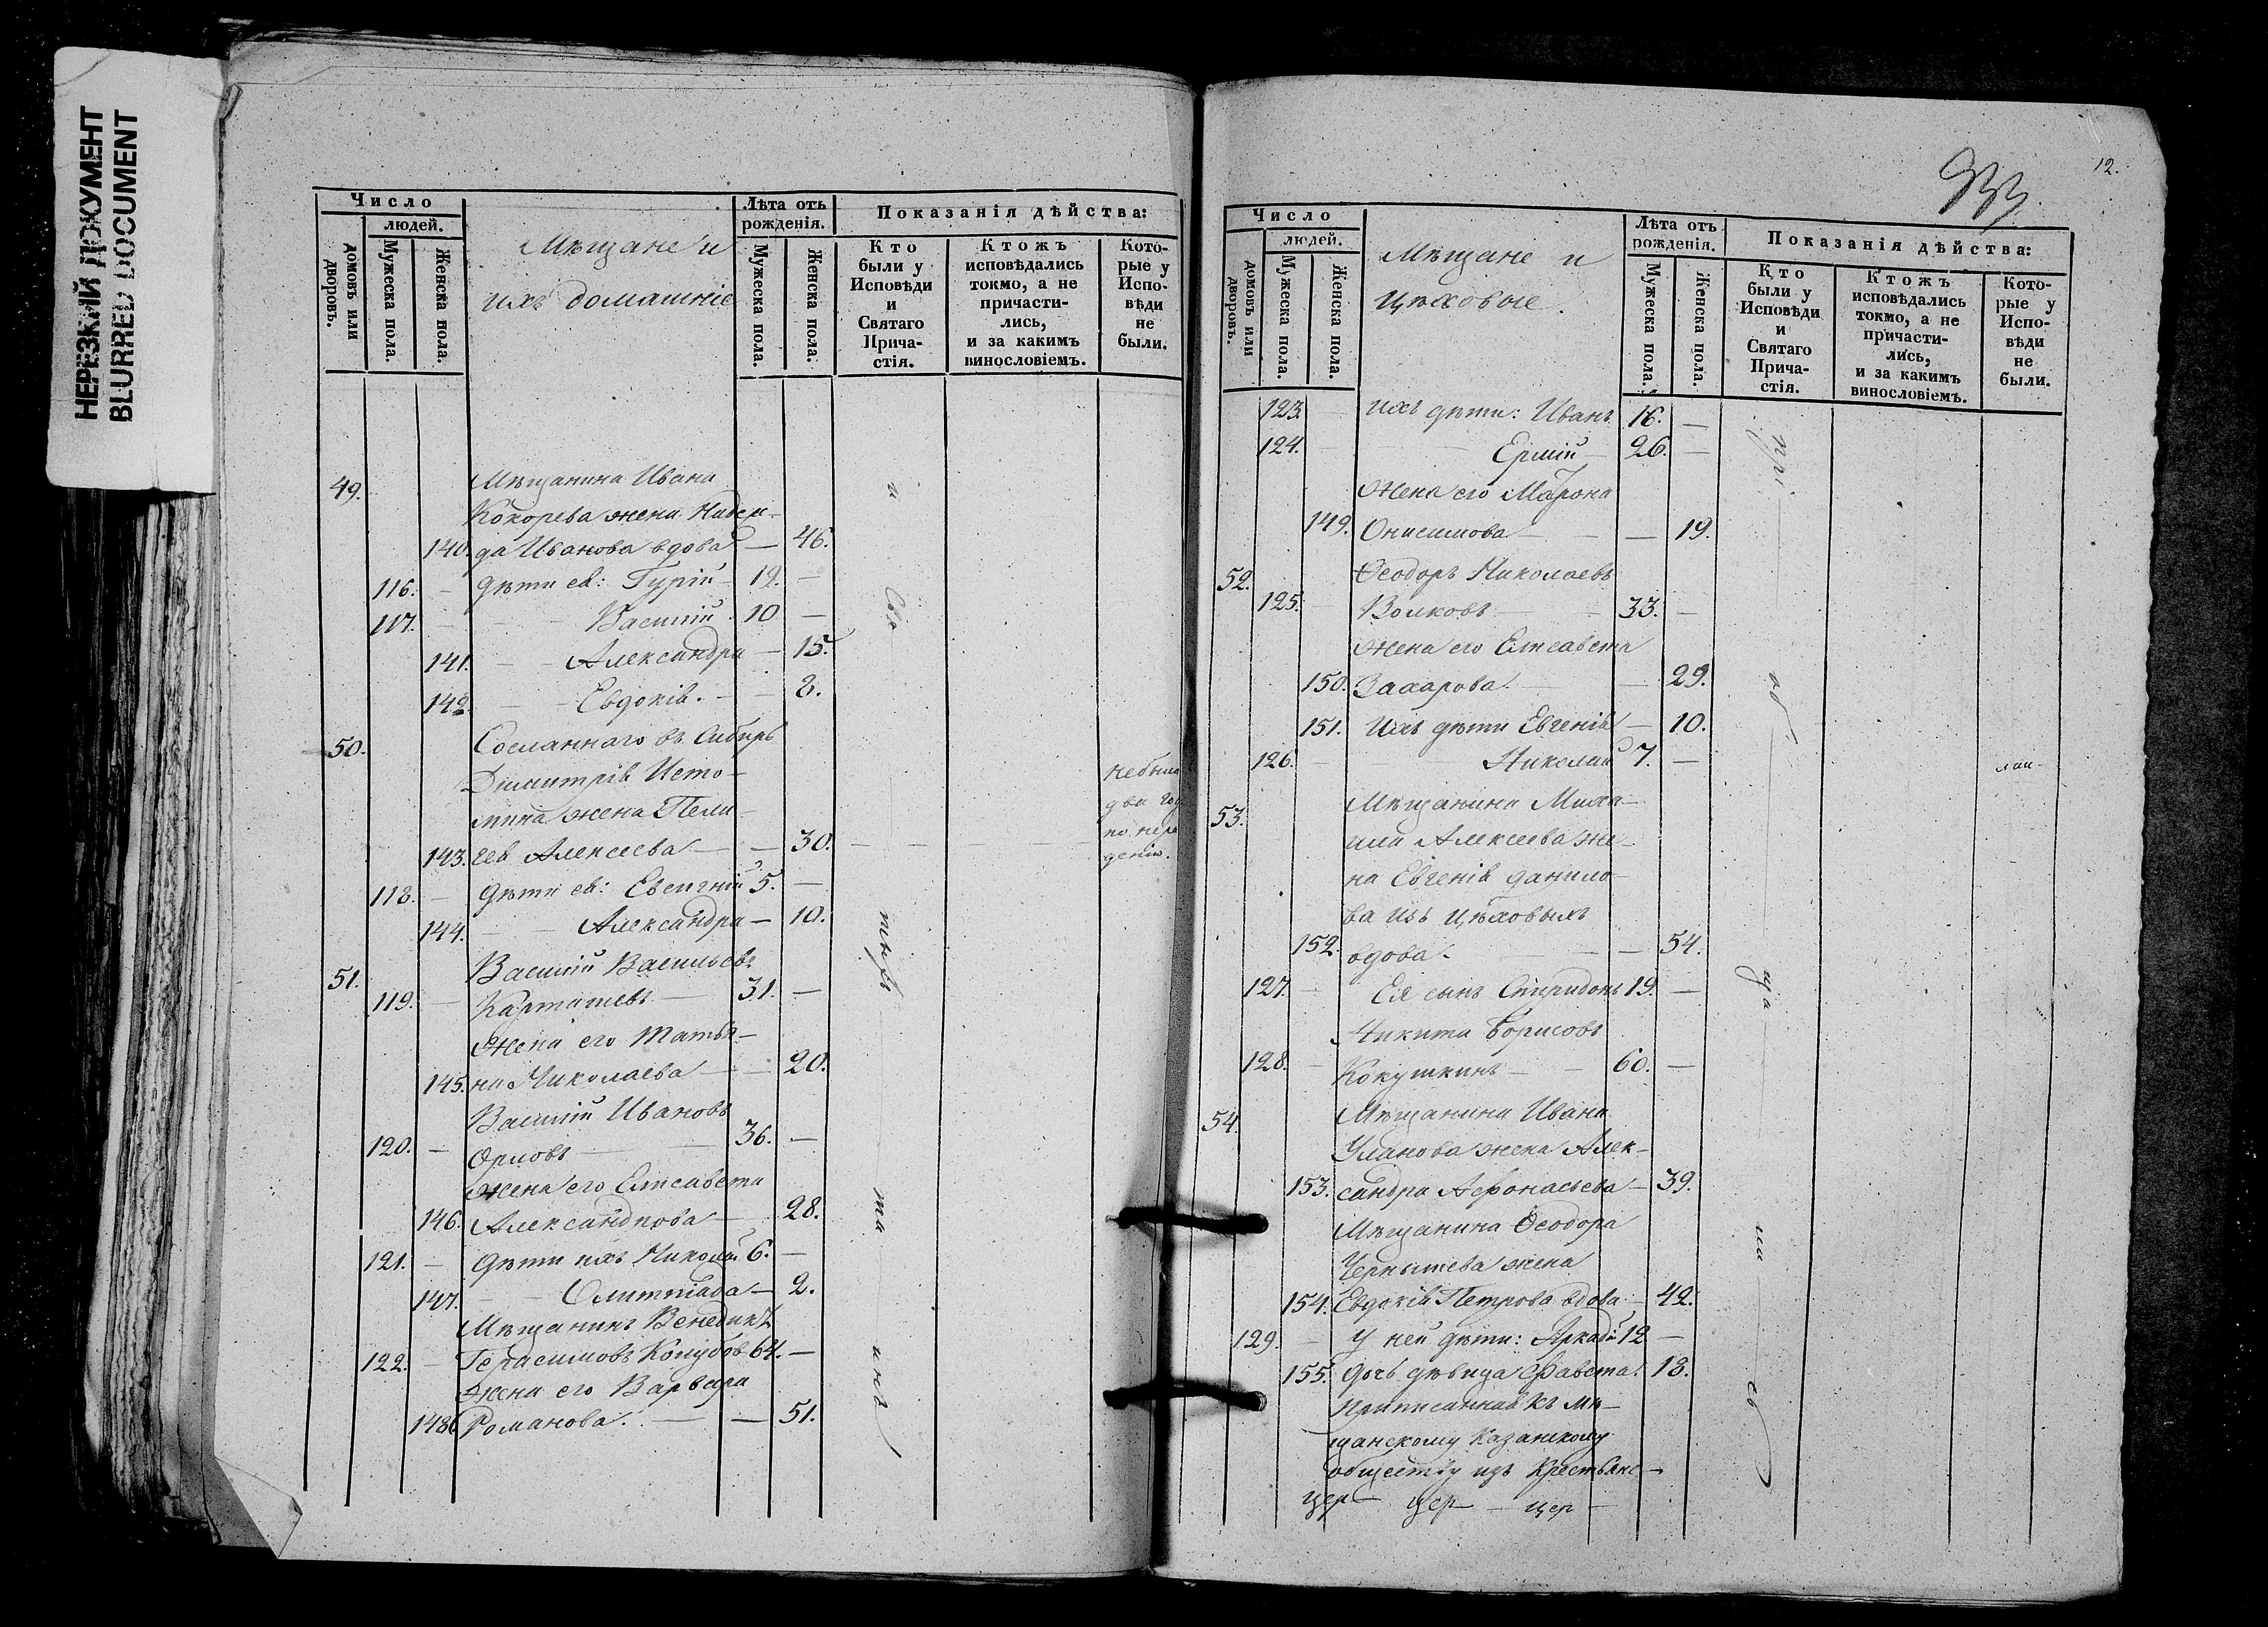 НЕРЕЗКИЙ ДОКУМЕНТ
BLURRED DOCUMENT
Число
людей.
домовъ или дворовъ.
Мужеска пола.
Женска пола.
Мѣщане и
ихъ домашніе
Лѣта отъ рожденія.
Мужеска пола.
Женска пола.
Показанія дѣйства:
Кто были у Исповѣди и Святаго Прича-стія.
Ктожъ исповѣдались токмо, а не причасти-лись, и за какимъ винословіемъ.
Кото-рые у Испо-вѣди не были.
49. Мѣщанина Ивана
Кокорева жена Надеж-
140. да Иванова вдова — 46.
116. — дѣти ея: Гурій — 12. —
117. — Василій 10 —
141. — Александра — 15.
142. — Евдокія. — 8.
50. Сосланнаго въ Сибирь
Димитрія Исто-
мина жена Пела-
143. гея Алексеева — 30.
не была
два год
по нера
денію.
118. — дѣти ея: Евсигній 5. —
144. — Александра — 10.
51. Василій Васильевъ
119. — Карташевъ — 31. —
Жена его Татья-
145. на Николаева — 20.
Василій Ивановъ
120. — Орловъ — 36. —
Жена его Елисавета
146. Александрова — 28.
121. — Дѣти ихъ Николай 6. —
147. — Олимпіада — 2.
Мѣщанинъ Венедиктъ
122. — Герасимовъ 64. —
Жена его Варвара
148 Романова. — 51.
и
Свя
та
12.
Число
людей.
домовъ или дворовъ.
Мужеска пола.
Женска пола.
Мѣщане и
цѣховые.
Лѣта отъ рожденія.
Мужеска пола.
Женска пола.
Показанія дѣйства:
Кто были у Исповѣди и Святаго Прича-стія.
Ктожъ исповѣдались токмо, а не причасти-лись, и за какимъ винословіемъ.
Кото-рые у Испо-вѣди не были.
123. — ихъ дѣти: Иванъ 16. —
124. — Ермій — 26. —
Жена его Матрона
149. Онисимова — 19.
52. Ѳеодоръ Николаевъ
125. — Волковъ — 33. —
Жена его Елисавета
150. Захарова. — 29.
151. Ихъ дѣти Евгенія — 10.
126. — Николай 7. —
53. Мѣщанина Миха-
ила Алексеева же-
на Евгенія Данило-
ва изъ цѣховыхъ
152. вдова. — 54.
127. — Ея сынъ Спиридонъ 19. —
Никита Борисовъ
128. — Кокушкинъ — 60. —
54. Мѣщанина Ивана
Уланова жена Алек-
153. сандра Аѳонасьева — 39.
Мѣщанина Ѳеодора
Чернышева жена
154. Евдокія Петрова вдова — 42.
129. — У ней дѣти: Аркадій 12 —
155. дочь дѣвица Фавста. 18.
Приписанная къ мѣ-
щанскому Казанскому
обществу изъ крестьянъ —
цер — цер — цер —